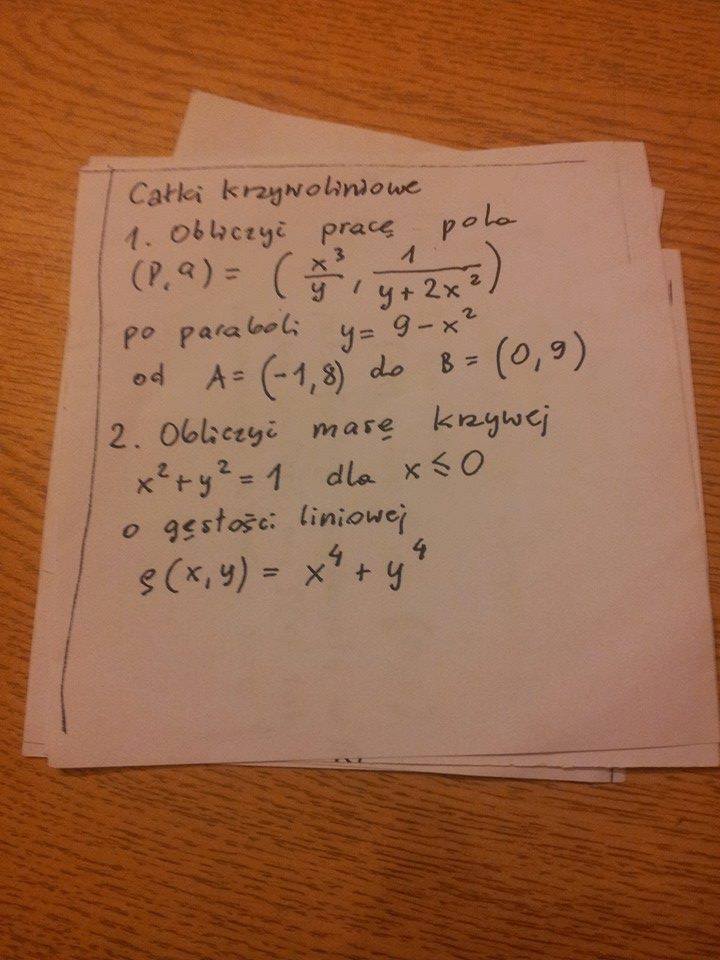 Całki krzywoliniowe
1. Obliczyć pracę pola
(P,Q) = ( x³/y , 1/(y+2x²) )
po paraboli y= 9-x²
od A= (-1,8) do B = (0,9)
2. Obliczyć masę krzywej
x²+y²=1 dla x≤0
o gęstości liniowej
ϱ(x,y) = x⁴+y⁴